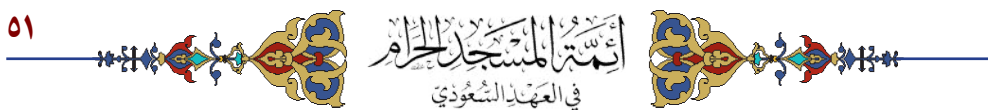 ٥١
أَئِمَّةُ المَسْجِدِ الحَرَامِ
في العَهْدِ السُّعُوديّ